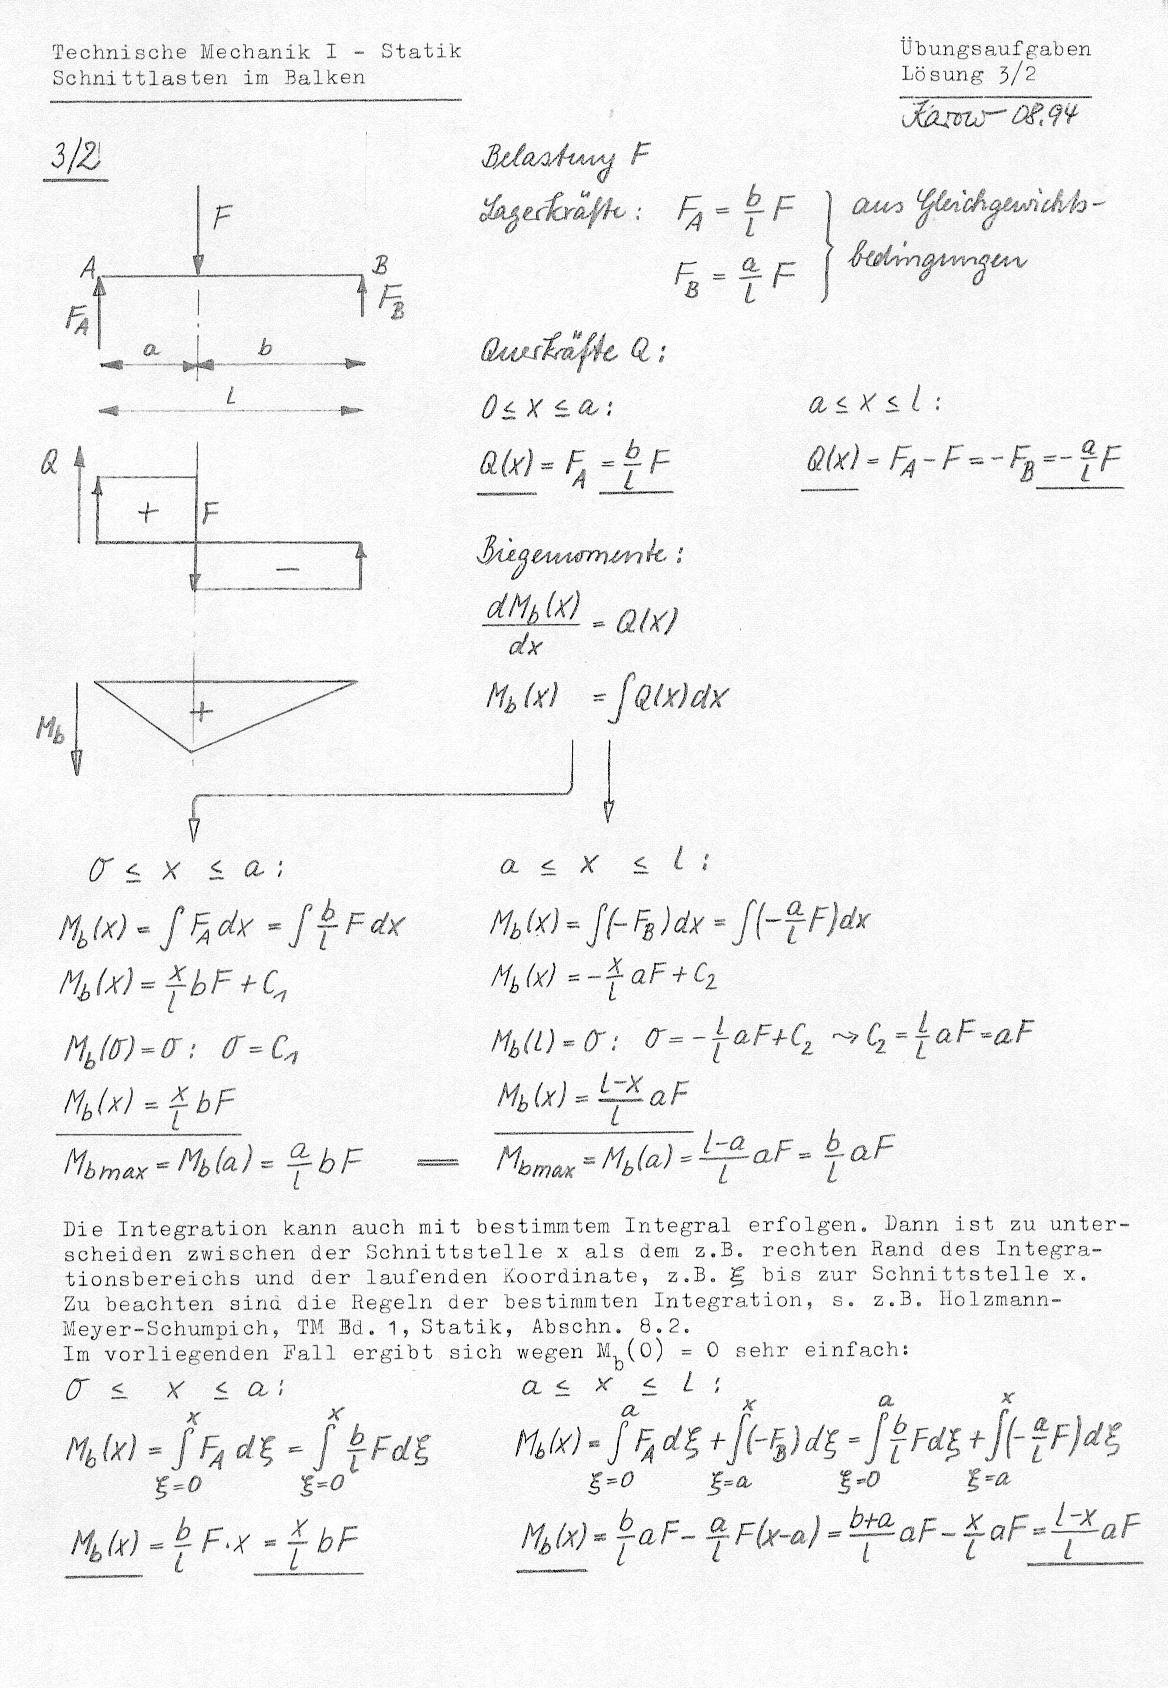 Technische Mechanik I - Statik
Schnittlasten im Balken
Übungsaufgaben
Lösung 3/2
Karow 08.94
3/2
Belastung F
Lagerkräfte: F_A = b/l F
F_B = a/l F
aus Gleichgewichts-
bedingungen
F
A B
F_A F_B
a b
l
Querkräfte Q:
0 ≤ x ≤ a: a ≤ x ≤ l:
Q(x) = F_A = b/l F Q(x) = F_A - F = -F_B = -a/l F
Q
+ F
−
Biegemomente:
dM_b(x)/dx = Q(x)
M_b(x) = ∫Q(x)dx
M_b
+
0 ≤ x ≤ a: a ≤ x ≤ l:
M_b(x) = ∫F_A dx = ∫ b/l F dx M_b(x) = ∫(-F_B)dx = ∫(-a/l F)dx
M_b(x) = x/l bF + C_1 M_b(x) = -x/l aF + C_2
M_b(0) = 0: 0 = C_1 M_b(l) = 0: 0 = -l/l aF + C_2 ⤳ C_2 = l/l aF = aF
M_b(x) = x/l bF M_b(x) = l-x/l aF
M_bmax = M_b(a) = a/l bF = M_bmax = M_b(a) = l-a/l aF = b/l aF
Die Integration kann auch mit bestimmtem Integral erfolgen. Dann ist zu unter-
scheiden zwischen der Schnittstelle x als dem z.B. rechten Rand des Integra-
tionsbereichs und der laufenden Koordinate, z.B. ξ bis zur Schnittstelle x.
Zu beachten sind die Regeln der bestimmten Integration, s. z.B. Holzmann-
Meyer-Schumpich, TM Bd. 1, Statik, Abschn. 8.2.
Im vorliegenden Fall ergibt sich wegen M_b(0) = 0 sehr einfach:
0 ≤ x ≤ a: a ≤ x ≤ l:
M_b(x) = ∫_{ξ=0}^{x} F_A dξ = ∫_{ξ=0}^{x} b/l F dξ M_b(x) = ∫_{ξ=0}^{a} F_A dξ + ∫_{ξ=a}^{x} (-F_B) dξ = ∫_{ξ=0}^{a} b/l F dξ + ∫_{ξ=a}^{x} (-a/l F) dξ
M_b(x) = b/l F·x = x/l bF M_b(x) = b/l aF - a/l F(x-a) = b+a/l aF - x/l aF = l-x/l aF